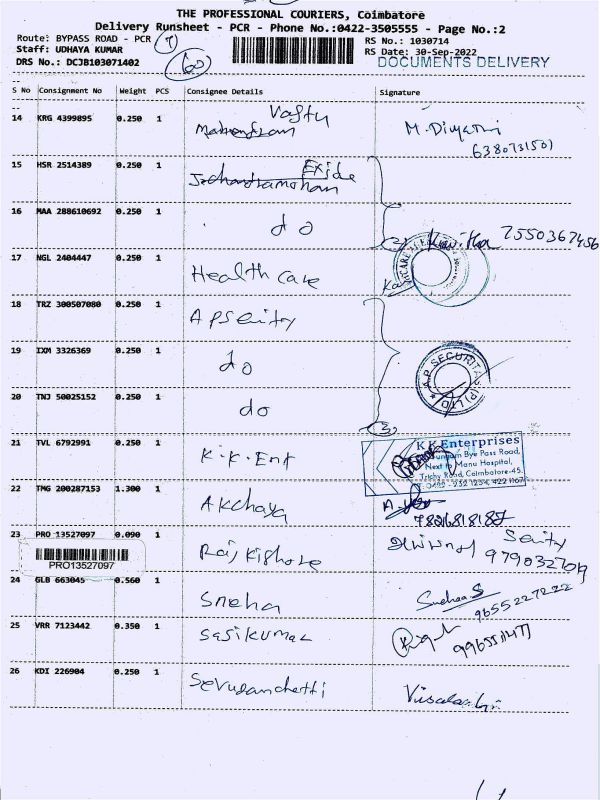 THE PROFESSIONAL COURIERS, Coimbatore
Delivery Runsheet - PCR - Phone No.:0422-3505555 - Page No.:2
Route: BYPASS ROAD - PCR 7
RS No.: 1030714
Staff: UDHAYA KUMAR
RS Date: 30-Sep-2022
DRS No.: DCJB103071402
60
DOCUMENTS DELIVERY
S No Consignment No Weight PCS Consignee Details Signature
14 KRG 4399895 0.250 1
6380731501
15 HSR 2514389 0.250 1 Exide
16 MAA 288610692 0.250 1 do
(2) Kavitha 7550367456
17 NGL 2404447 0.250 1 Health care
18 TRZ 300507080 0.250 1
19 IXM 3326369 0.250 1 do
A.P. SECURITAS (P) LTD
20 TNJ 50025152 0.250 1 do
(3)
21 TVL 6792991 0.250 1 K.K.Ent
K K Enterprises
Bye Pass Road,
Next to Manu Hospital,
Trichy Road, Coimbatore-45.
22 TMG 200287153 1.300 1 Akchaya
23 PRO 13527097 0.090 1 Raj Kishore
PRO13527097
24 GLB 663045 0.560 1 Sneha
Snehaa S
9655227222
25 VRR 7123442 0.350 1 Sasikumar
26 KDI 226904 0.250 1